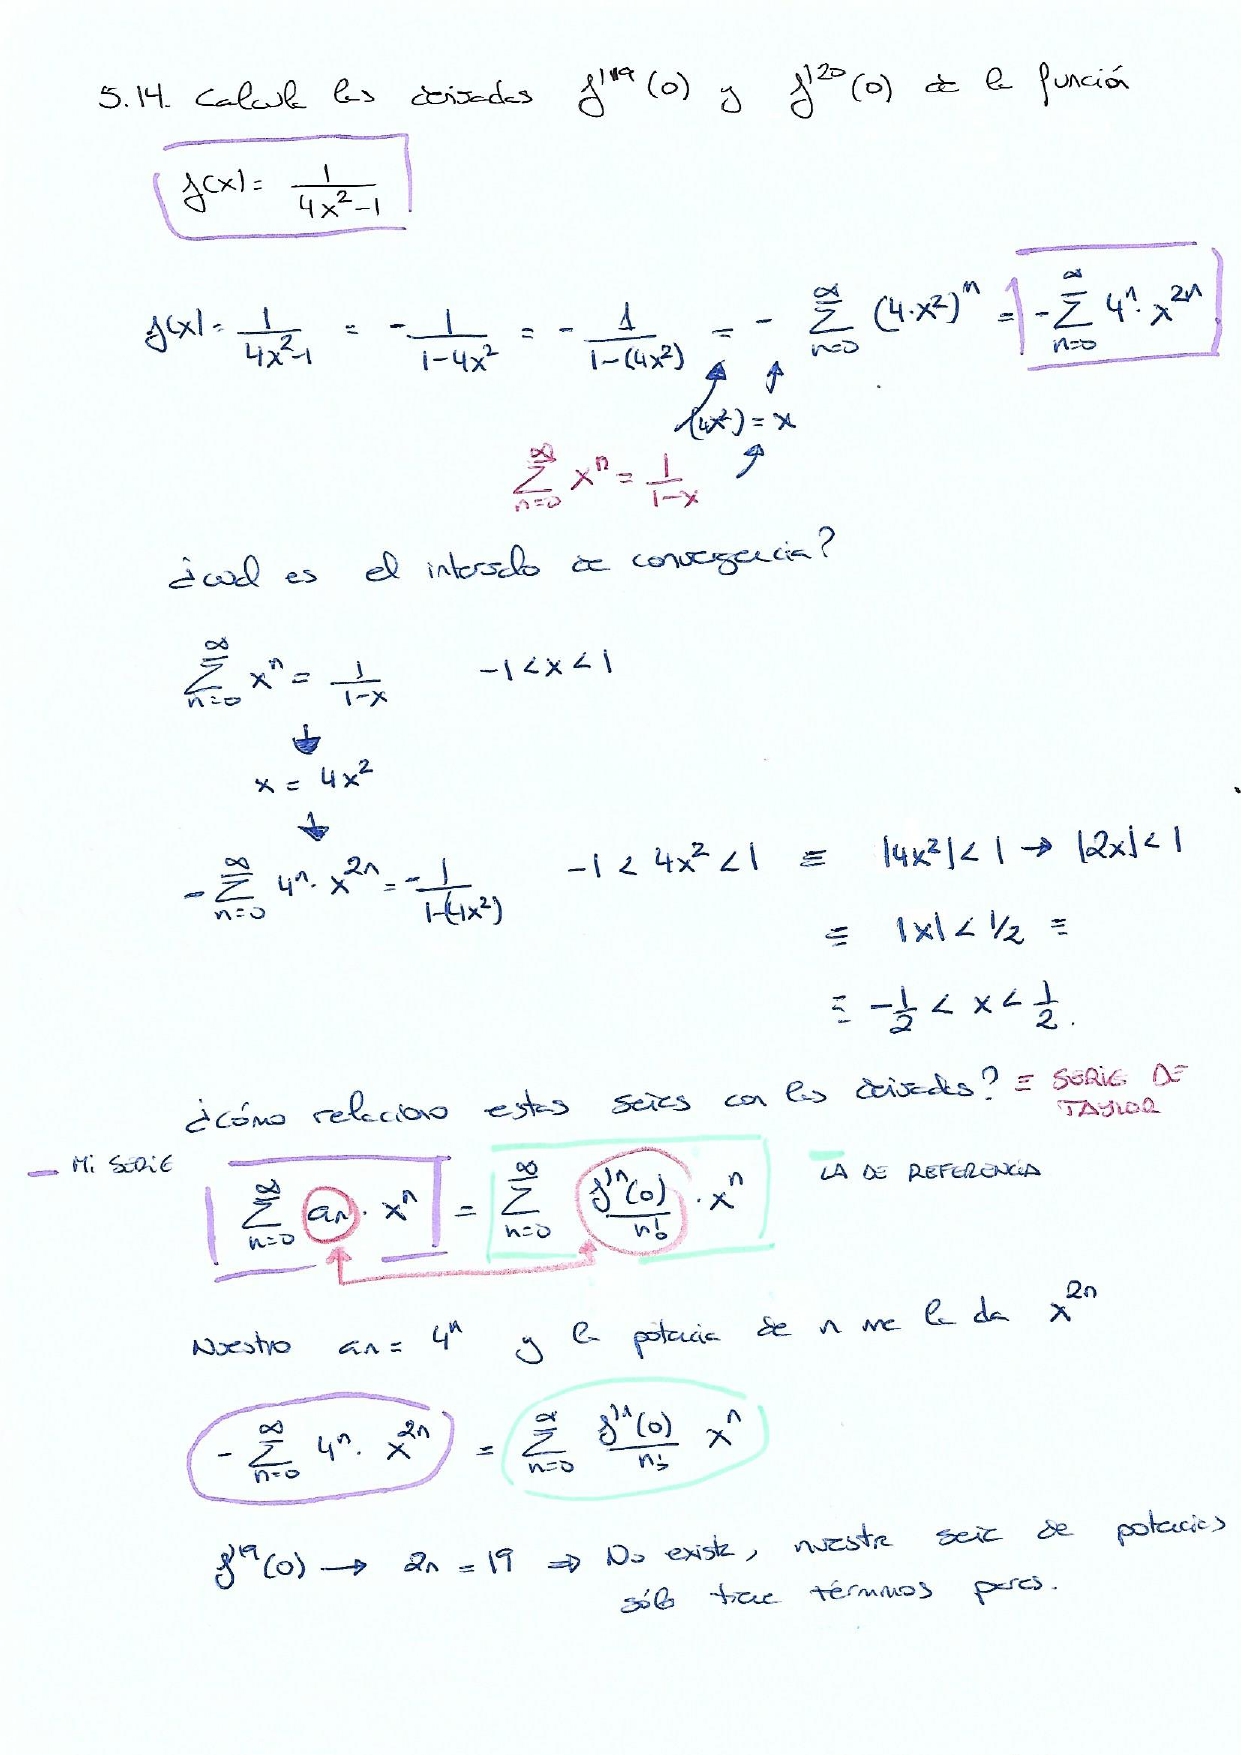 5.14. Calcula las derivadas f'¹⁹(0) y f'²⁰(0) de la función
f(x) = 1/(4x²-1)
f(x) = 1/(4x²-1) = -1/(1-4x²) = -1/(1-(4x²)) = -∑_{n=0}^{∞} (4·x²)ⁿ = -∑_{n=0}^{∞} 4ⁿ·x²ⁿ
(4x²) = x
∑_{n=0}^{∞} xⁿ = 1/(1-x)
¿cual es el intervalo de convergencia?
∑_{n=0}^{∞} xⁿ = 1/(1-x) -1 < x < 1
x = 4x²
-∑_{n=0}^{∞} 4ⁿ·x²ⁿ = -1/(1-(4x²)) -1 < 4x² < 1 ≡ |4x²| < 1 → |2x| < 1
≡ |x| < 1/2 ≡
≡ -1/2 < x < 1/2.
¿cómo relaciono estas series con las derivadas? ≡ SERIE DE TAYLOR
- Mi SERIE ∑_{n=0}^{∞} an·xⁿ = ∑_{n=0}^{∞} f'ⁿ(0)/n! · xⁿ LA DE REFERENCIA
Nuestro an = 4ⁿ y la potencia de n me la da x²ⁿ
-∑_{n=0}^{∞} 4ⁿ·x²ⁿ = ∑_{n=0}^{∞} f'ⁿ(0)/n! xⁿ
f'¹⁹(0) → 2n = 19 ⇒ No existe, nuestra serie de potencias
sólo trae términos pares.